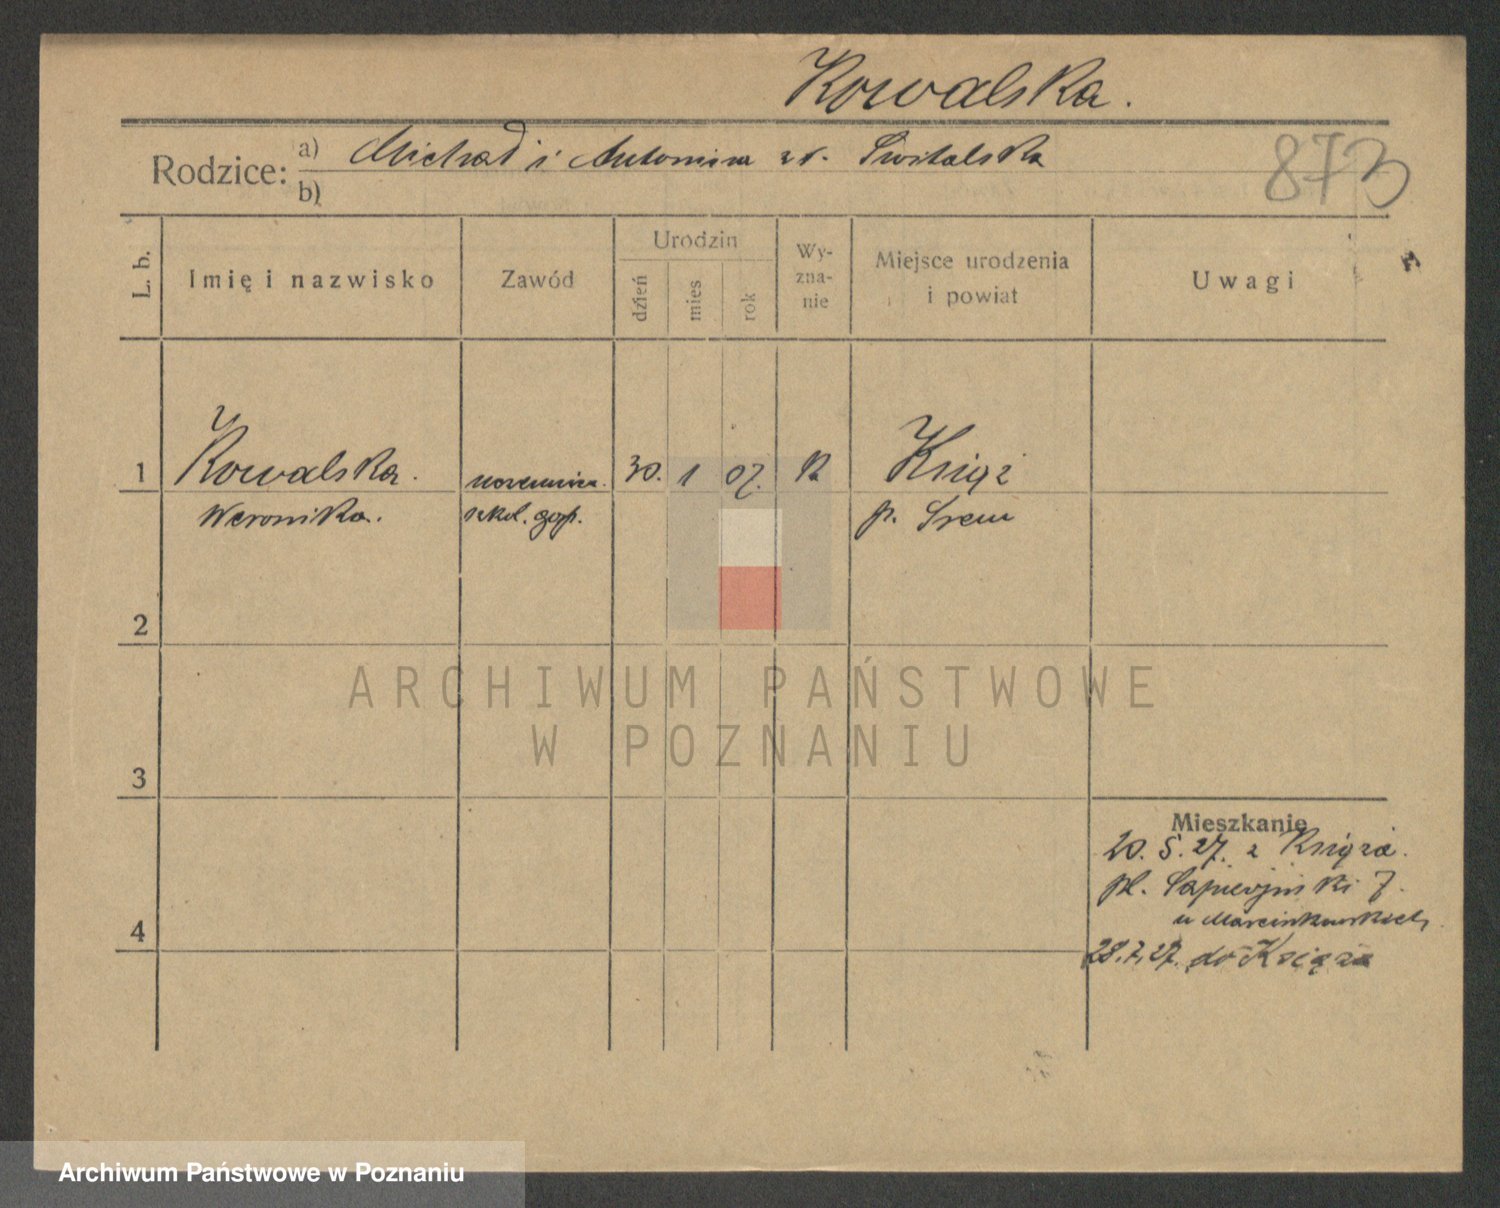 Kowalska.
Rodzice: a) Michał i Antonina zd. Świtalska
b)
873
L. b.
Imię i nazwisko
Zawód
Urodzin
dzień
mies
rok
Wy-
zna-
nie
Miejsce urodzenia
i powiat
Uwagi
1 Kowalska. uczennica. 30. 1 07. k Książ
Weronika. szkol. gosp. p. Śrem
2
3
4
Mieszkanie
20. 5. 27. z Książa.
pl. Sapieżyński 7.
u Marcinkowskich
28.7.27. do Książa
ARCHIWUM PAŃSTWOWE
W POZNANIU
Archiwum Państwowe w Poznaniu